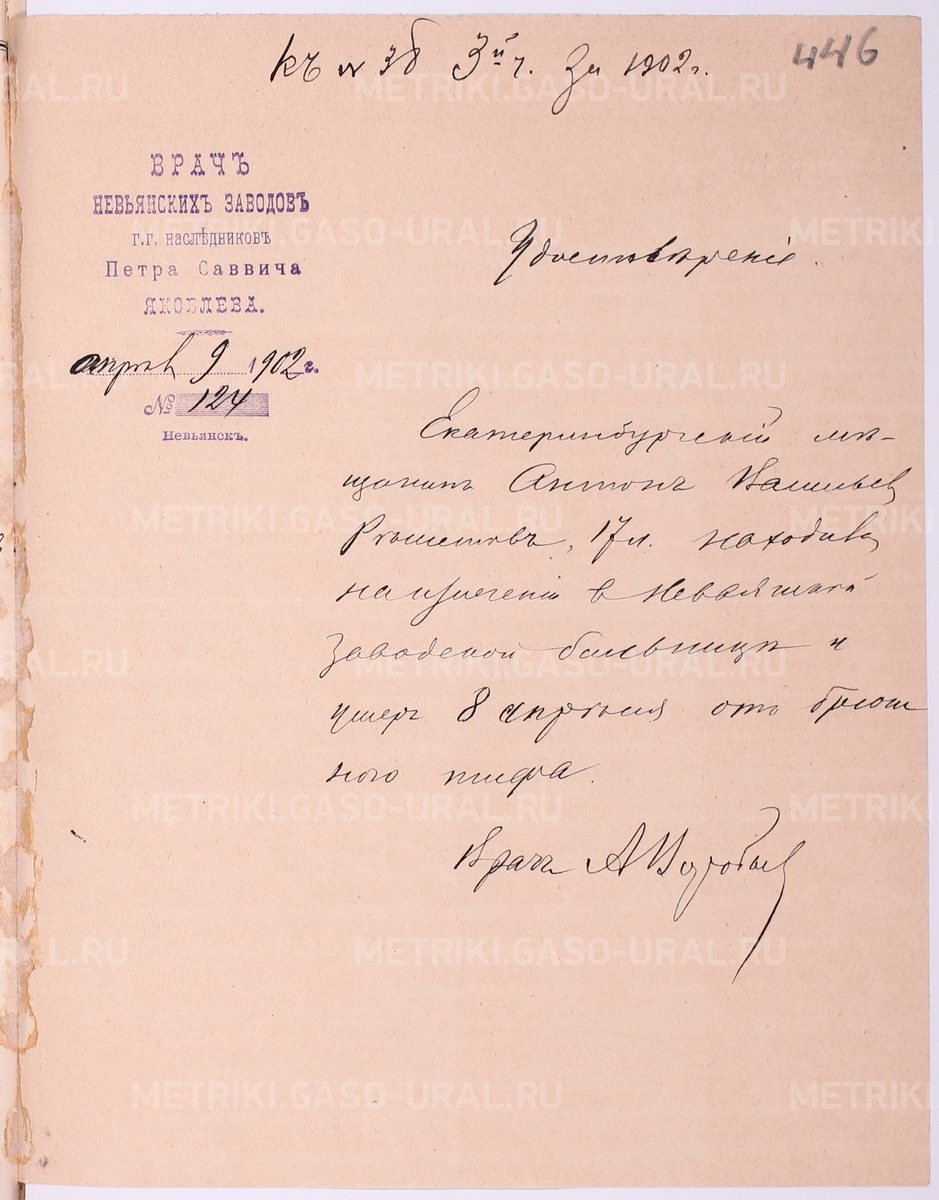 Къ № 36 3й ч. За 1902 г.
446
ВРАЧЪ
НЕВЬЯНСКИХЪ ЗАВОДОВЪ
Г.Г. НАСЛѢДНИКОВЪ
Петра Саввича
ЯКОВЛЕВА.
апрѣля 9 1902 г.
№ 124
Невьянскъ.
Удостовѣреніе.
Екатеринбургскій мѣ-
щанинъ Антонъ Васильев
Рѣшетовъ, 17 л. находился
на излеченіи в Невьянской
Заводской больницѣ и
умеръ 8 апрѣля отъ брюш
ного тифа.
Врачъ А Воробьев
METRIKI.GASO-URAL.RU